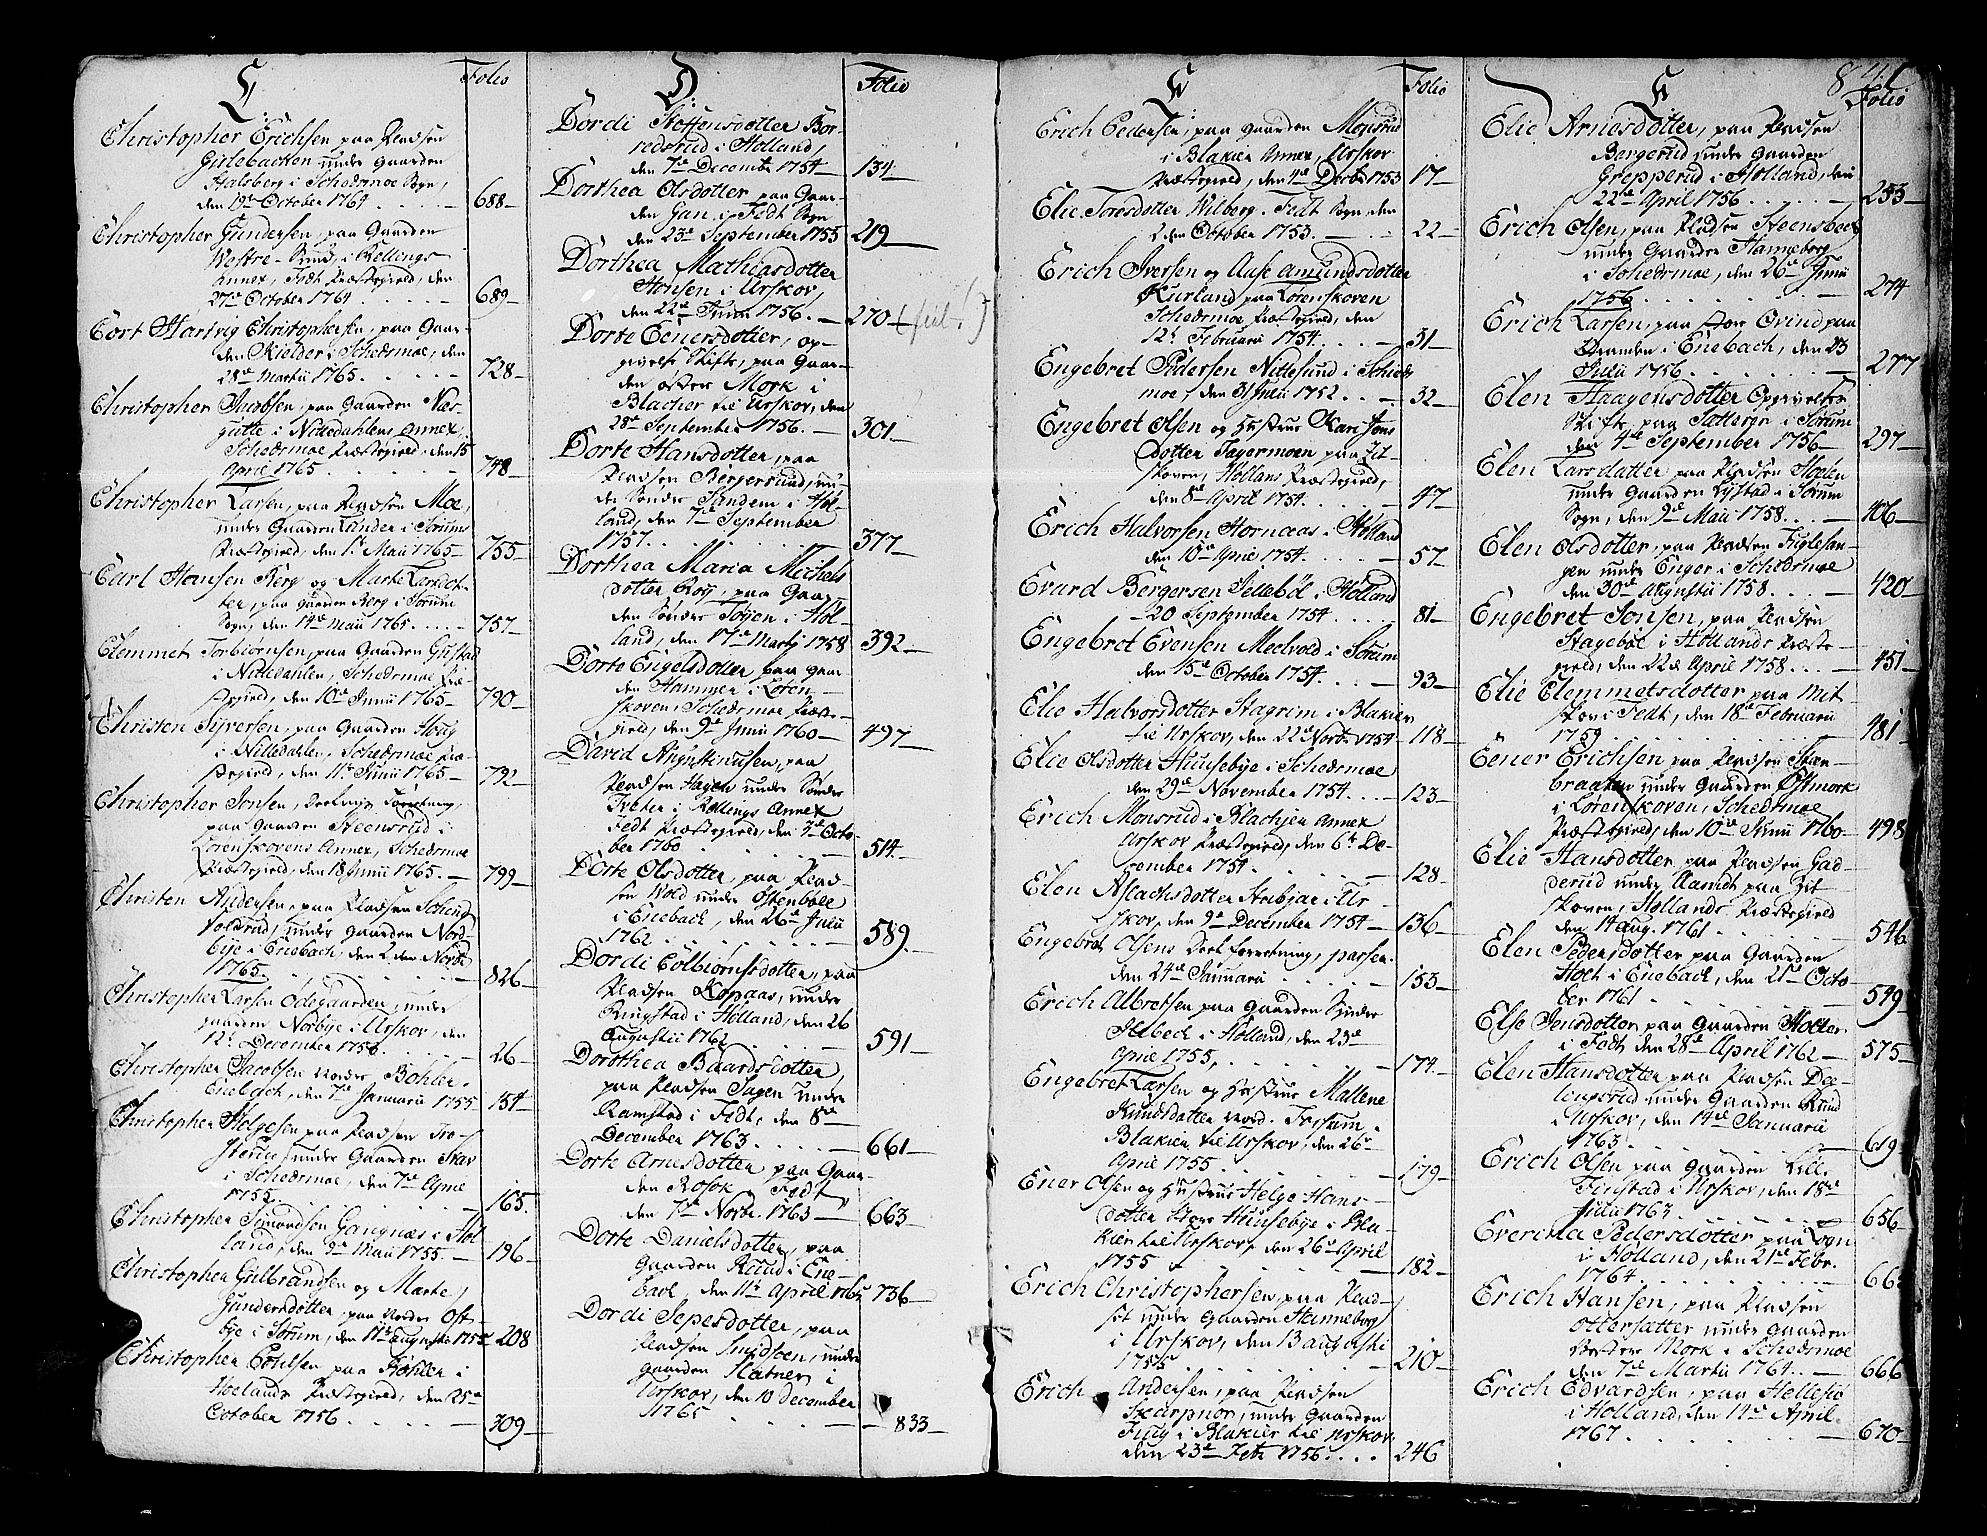 C: Folio
Christopher Erichsen paa Pladsen
Girlebacken under Gaarden
Halsberg i Schedsmoe Sogn,
den 19de October 1764 . . . 688
Christopher Gundersen, paa Gaarden
Westre-Rud, i Rellings
Annex, Fedt Præstegield, den
27de October 1764 . . . 689
Cort Hartvig Christophersen, paa Gaar-
den Kielder i Schedsmoe, den
28de Martii 1765. . . 728
Christopher Jacobsen, paa Gaarden Næs-
gutte i Nittedahlens Annex,
Schedsmoe Præstegield, den 15
April 1765 . . . 748
Christopher Larsen, paa Pladsen Moe,
under Gaarden Lander i Sørums
Præstegield, den 1te Maii 1765 755
Carl Hansen Berg og Marte Larsdot-
ter, paa Gaarden Berg i Sørum
Sogn, den 14de Maii 1765. . . 757
Clemmet Torbiørnsen, paa Gaarden Gustad
i Nittedahlen, Schedsmoe Præ-
stegield, den 10de Junii 1765 790
Christen Syversen, paa Gaarden Houg
i Nittedahlen, Schedsmoe Præ-
stegield, den 11te Junii 1765 792
Christopher Jonsen, Deelnings Forretning,
paa Gaarden Steensrud i
Lørenskovens Annex, Schedsmoe
Præstegield, den 18 Junii 1765. 799
Christen Andersen, paa Pladsen
under Gaarden Nord-
bye i Enebach, den 2den Novbr
1765. . . . 826
Christopher Larsen Ødegaarden, under
gaarden Norbye i Urskov, den
12te December 1753 . . . 26
Christopher Jacobsen Nordre Bøhler
Enebach, den 7de Januarii 1755 154
Christopher Helgesen paa Pladsen Tro-
sterud under Gaarden Skar
i Schedsmoe, den 7de April
1755. . . . 165
Christopher Simondsen Gangnæs i Høl
land, den 9de Maii 1755. 196
Christopher Gulbrandsen og Marte
Gundersdotter, paa Nordre Ost-
bye i Sørum, den 17de Augusti 1755 208
Christopher Coulsen paa Bøhler i
Hoelands Præstegield, den 25de
October 1756 . . . 309
D: Folio
Dordi Stoffensdotter Bor-
redsrud i Holland,
den 7de Decembr 1754 134
Dorthea Olsdotter paa Gaar-
den Gan i Fedt Sogn
den 23de September 1755 219
Dorthea Mathiasdotter
Honsen i Urskov,
den 22de Junii 1756. 270
Dorte Eenersdotter, op-
givelses Skifte, paa Gaar-
den østere Mork i
Blacher til Urskov, den
28de September 1756. 301
Dorte Hansdotter, paa
Pladsen Bergersrud, un-
der Søndre Sundem i Høl-
land, den 7de September
1757. . . . 377
Dorthea Maria Michels
dotter Croy, paa Gaar-
den Søndre Tøyen i Høl-
land, den 17de Martij 1758 392
Dorte Engelsdotter, paa Gaar
den Hammer i Løren-
skoven i Schedsmoe Præste-
gield, den 9de Junii 1760 497
David Augustinusen, paa
Pladsen Hagen under Søndre
Ireker i Rellings Annex
Fedt Præstegield, den 3de Octo
ber 1760 . . . 514
Dorte Olsdotter, paa Plad-
sen Vold under Østenbøle
i Enebach, den 26de Julii
1762 . . . 589
Dordi Colbiørnsdotter, paa
Pladsen Kopaas, under
Ringstad i Holland, den 26
Augustii 1762 . . . 591
Dorothea Baardsdotter,
paa Pladsen Sagen under
Ramstad i Fedt, den 8de
December 1763 . . . 661
Dorte Arnesdotter paa Gaar
den Rosok Fedt
den 7de Novbr. 1763 663
Dorte Danielsdotter, paa
Gaarden Ruud i Ene-
bach, den 11te April 1765 736
Dordi Jepesdotter, paa
Pladsen Smidsoen, under
gaarden Slatner i
Urskov, den 10 December
1765 . . . 833
E Folio
Erich Pedersen, paa Gaarden Monsrud
i Blakier Annex, Urskov
Præstegield, den 4de Decbr 1753 17
Elie Toresdotter Wilberg. Fedt Sogn, den
2den October 1753. . . 22
Erich Iversen og Aase Amundsdotter
Kurland paa Lørenskoven
Schedsmoe Præstegield, den
12te Februarii 1754. . . 31
Engebret Pedersen Nittesund i Scheds
moe, den 31 Junii 1752. . . 32
Engebret Olsen og Hustrue Kari Jons
dotter Fagermoen paa Fit-
skoven, Holland Præstegield,
den 8de April 1754. . . 47
Erich Halvorsen Hornaas i Holland
den 10de April 1754. . . 57
Evard Bergersen Jellebøl i Holland
20 September 1754. . . 81
Engebret Evensen Medvold i Sørum
den 15de October 1754. . . 93
Elie Halvorsdotter Hagrim i Blakier
til Urskov, den 22de Novbr 1754 118
Elie Olsdotter Huusebye i Schedsmoe
den 29de November 1754. . . 123
Erich Monsrud i Blachjer Annex
Urskov Præstegield, den 6te De-
cember 1754. . . 128
Elen Aslachsdotter Harbjar i Ur-
skov, den 9de December 1754 136
Engebret Olsens Deel forretning,
den 24de Januarii . . . 153
Erich Albretsen paa Gaarden Synder
Selbech i Holland, den 23de
April 1755. . . 174
Engebret Larsen og Hustrue Mallene
Knudsdotter Nord. Fossum
Blakier til Urskov, den 26de
April 1755 . . . 179
Ener Olsen og Hustrue Helge Hans-
dotter Huusebye i Bla
kier til Urskov, den 26de April
1755 . . . 182
Erich Christophersen paa Plad-
set under Gaarden Henneberg
i Urskov, den 13 Augusti
1755 . . . 210
Erich Andersen, paa Pladsen
Skarpnor, under Gaarden
Fuug i Blakier til Urskov
den 23de Febr 1756. . . 246
E 841 Folio
Elie Arnesdotter, paa Pladsen
Bergerud under Gaarden
Grepperud i Holland, den
22de April 1756 . . . 255
Erich Olsen, paa Pladsen Steensbech
under Gaarden Hanneborg
i Schedsmoe, den 26de Junii
1756 . . . 274
Erich Larsen, paa store Qvind paa
Dramden i Enebach, den 23
Julii 1756 . . . 277
Elen Haagensdotter Opgivelses
Skifte, paa Sotteren i Sørum
den 4de September 1756 297
Elen Larsdatter paa Pladsen Holen
under Gaarden Lystad i Sørum
Sogn, den 9de Maii 1758. . . 406
Elen Olsdotter, paa Pladsen Fuglesan-
gen under Enger i Schedsmoe
den 30de Augustii 1758. . . 420
Engebret Jonsen, paa Pladsen
Stagebøl i Hollands Præste
gield, den 22de April 1758. . . 451
Elie Clemmetsdotter paa Mit-
skov i Fedt, den 18de Februarii
1759. . . 481
Eener Erichsen paa Pladsen Skøn-
braaten under Gaarden Østmork
i Lørenskoven, Schedsmoe
Præstegield, den 10de Junii 1760 498
Elie Hansdotter paa Pladsen Gad-
derud under Aamot paa Fit
skoven, Hollands Præstegield
den 14 Aug. 1761 . . . 546
Elen Pedersdotter paa Gaarden
Holt i Enebach, den 21de Octo
ber 1761 . . . 549
Else Jensdotter paa Gaarden Holter
i Fedt den 28de April 1762 575
Elen Hansdotter paa Pladsen Dee-
lenserud under Gaarden Krud
i Urskov, den 14de Januarii
1763. . . 619
Erich Olsen paa Gaarden Lille
Finstad i Urskov, den 18de
Julii 1763. . . 656
Everina Pedersdotter paa Logn
i Holland, den 21de Febr.
1764. . . 66
Erich Hansen, paa Pladsen
Ottersætter under Gaarden
Vestere Mork i Schedsmoe
den 7de Martii 1764. . . 666
Erich Edvardsen, paa Hellesiø
i Holland, den 14de April
1767. . . 670